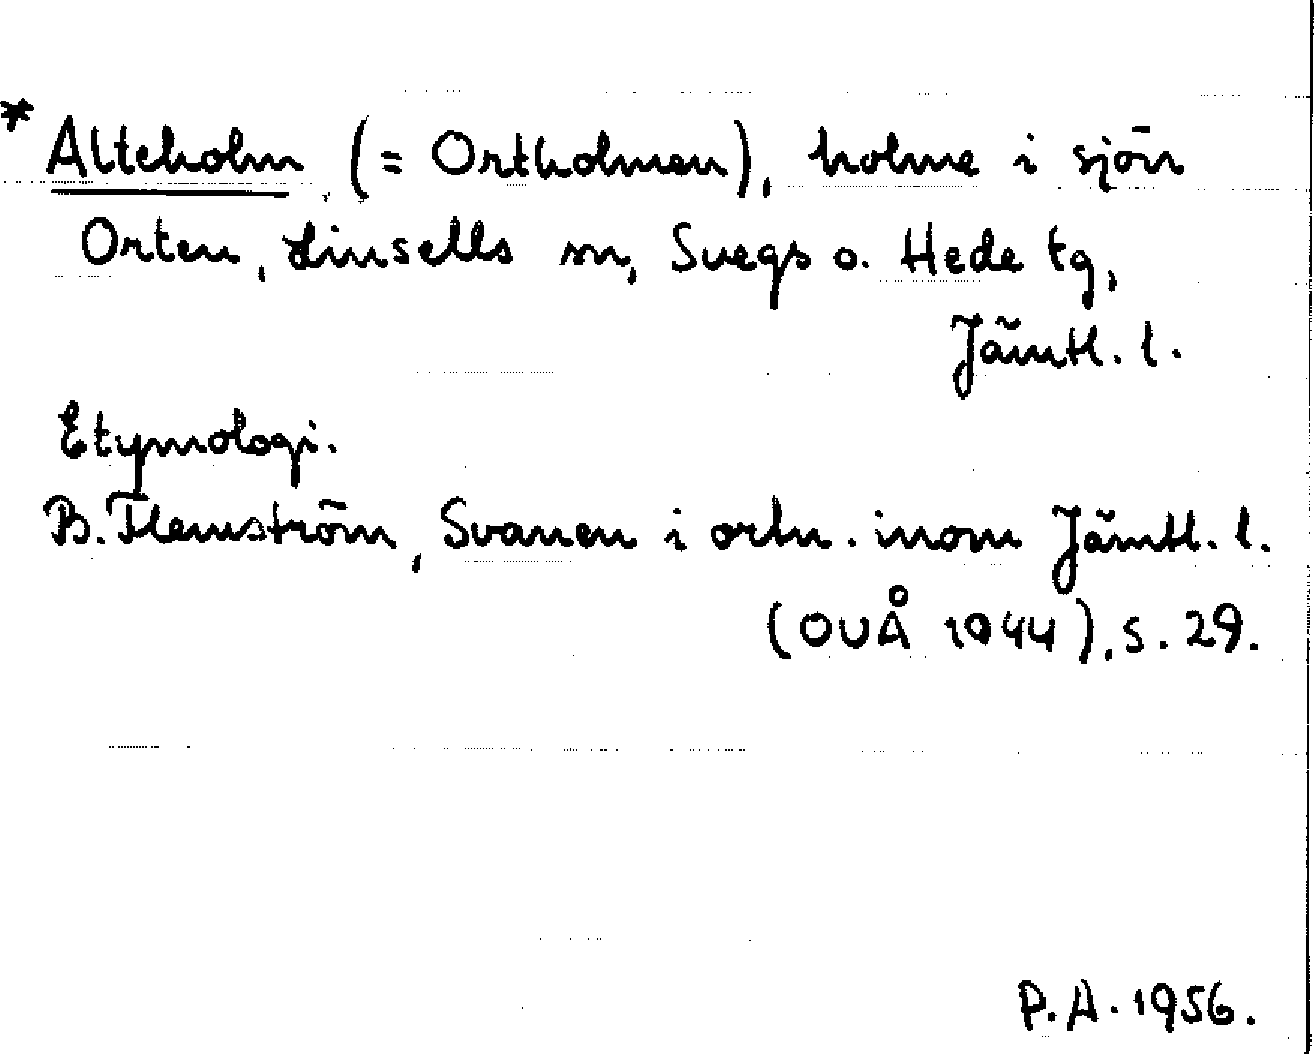 * Alteholm (= Ortholmen), holme i sjön
Orten, Linsells sn, Svegs o. Hede tg,
Jämtl. l.
Etymologi.
B. Flemström, Svanen i ortn. inom Jämtl. l.
(OUÅ 1944), s. 29.
P.A. 1956.